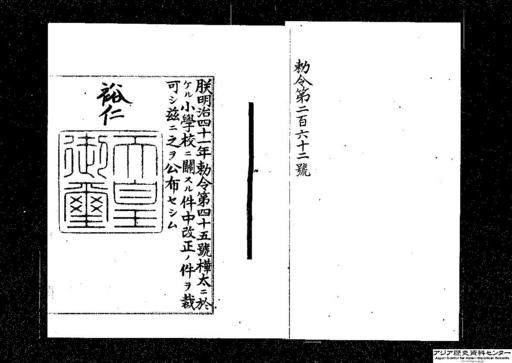 勅令第二百六十二號
朕明治四十一年勅令第四十五號樺太ニ於
ケル小學校ニ關スル件中改正ノ件ヲ裁
可シ茲ニ之ヲ公布セシム
裕仁
天皇
御璽
アジア歴史資料センター
Japan Center for Asian Historical Records